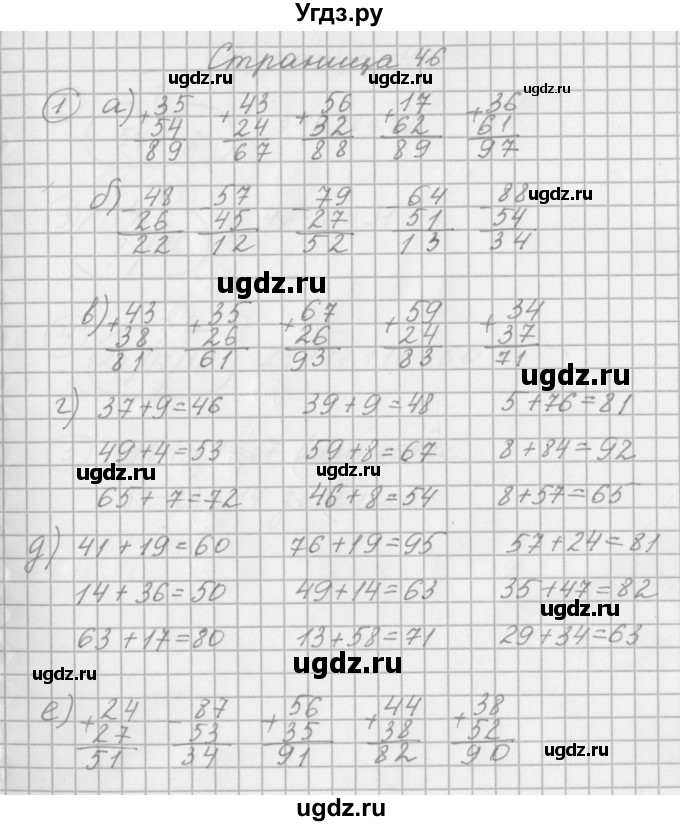 Угдз.ру
Страница 46
ugdz.ru ugdz.ru
ugdz.ru
1 а) +35 +43 +56 +17 +36
54 24 32 62 61
89 67 88 89 97
б) -48 -57 -79 -64 -88
ugdz.ru
26 45 27 51 54
22 12 52 13 34
ugdz.ru
в) +43 +35 +67 +59 +34
38 26 26 24 37
81 61 93 83 71
ugdz.ru
г) 37+9=46 39+9=48 5+76=81
49+4=53 59+8=67 8+84=92
ugdz.ru ugdz.ru
65+7=72 46+8=54 8+57=65
д) 41+19=60 76+19=95 57+24=81
14+36=50 49+14=63 35+47=82
ugdz.ru
63+17=80 13+58=71 29+34=63
ugdz.ru ugdz.ru
е) +24 -87 +56 +44 +38
27 53 35 38 52
51 34 91 82 90
ugdz.ru
ugdz.ru